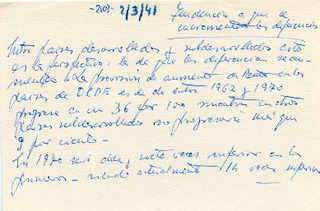 -2103- 2/3/41
Tendencia a que se
incrementen las diferencias
Entre países desarrollados y subdesarrollados esta
es la perspectiva: la de que las diferencias
a la prevision de aumento de Renta en los
países de OCDE es de de entre 1962 y 1970
progrese en un 36 por 100 mientras en otros
países subdesarrollados no progresará más que
9 por ciento.
En 1970 será doce, y siete veces inferior en los
primeros - siendo actualmente 14 veces inferior